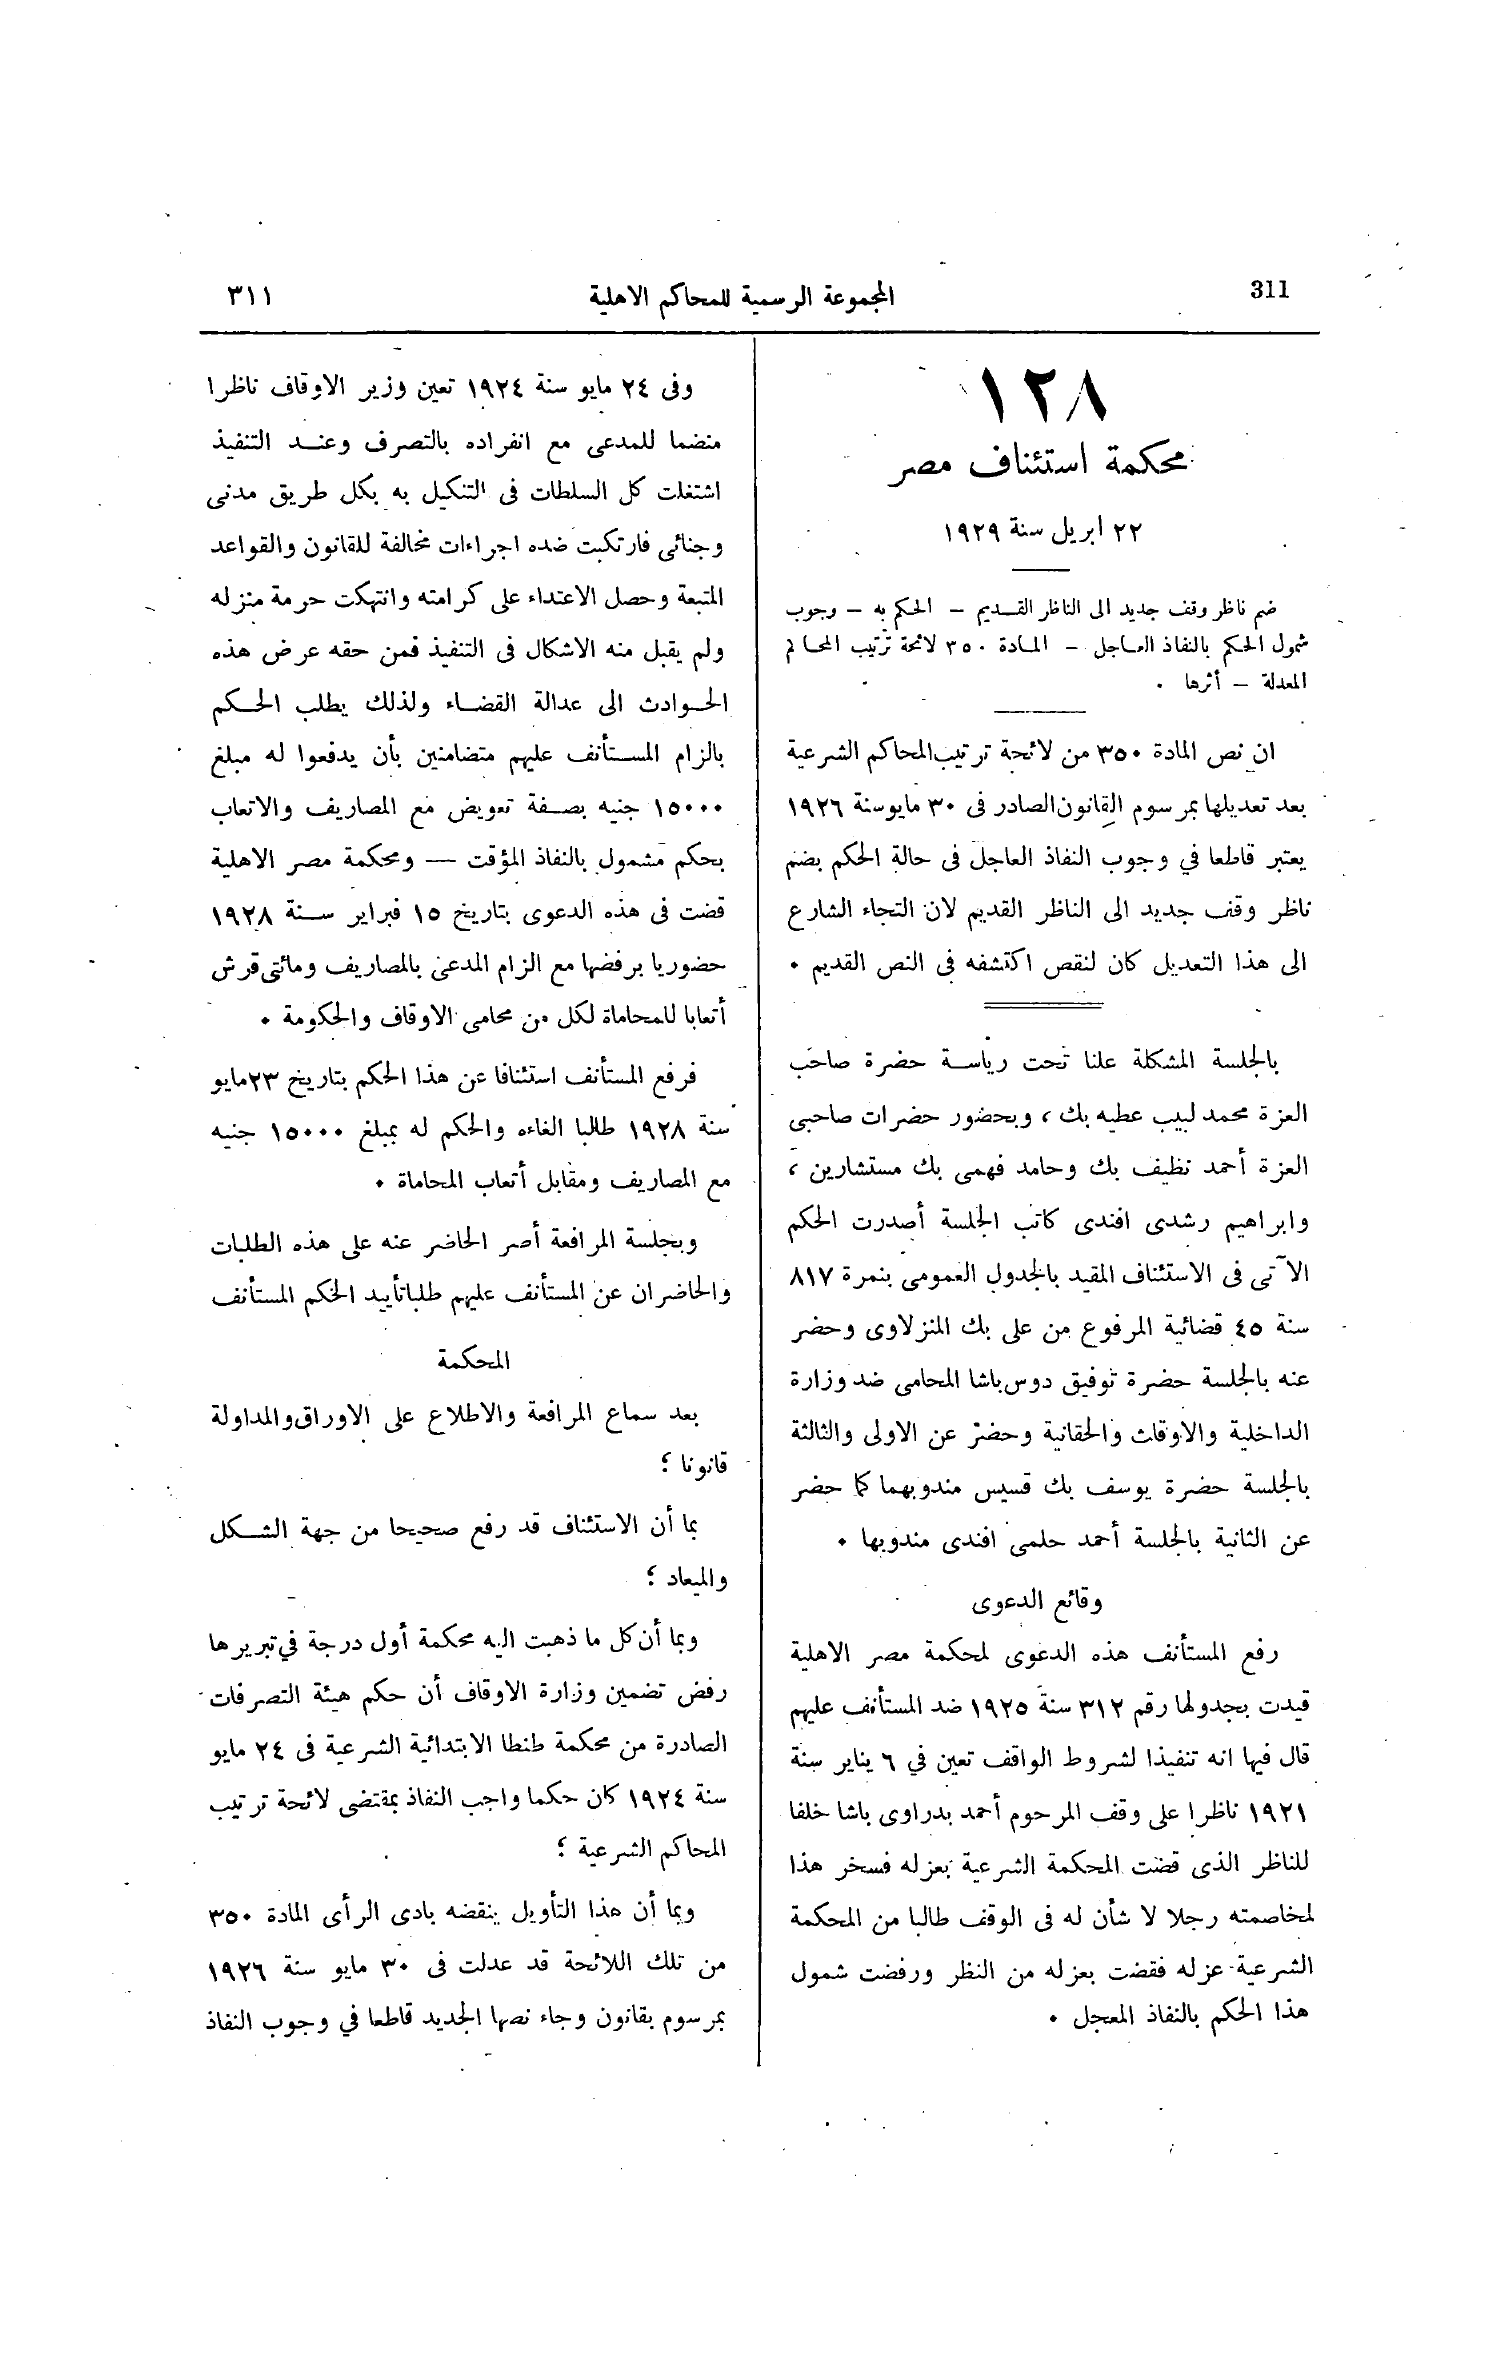 311
المجموعة الرسمية للمحاكم الاهلية
٣١١
١٢٨
محكمة استئناف مصر
٢٢ ابريل سنة ١٩٢٩
ضم ناظر وقف جديد الى الناظر القديم – الحكم به – وجوب
شمول الحكم بالنفاذ العاجل – المادة ٣٥٠ لائحة ترتيب المحاكم
المعدلة – أثرها .
ان نص المادة ٣٥٠ من لائحة ترتيب المحاكم الشرعية
بعد تعديلها بمرسوم القانون الصادر فى ٣٠ مايو سنة ١٩٢٦
يعتبر قاطعا في وجوب النفاذ العاجل فى حالة الحكم بضم
ناظر وقف جديد الى الناظر القديم لان التجاء الشارع
الى هذا التعديل كان لنقص اكتشفه في النص القديم .
بالجلسة المشكلة علنا تحت رياسة حضرة صاحب
العزة محمد لبيب عطيه بك ، وبحضور حضرات صاحبى
العزة أحمد نظيف بك وحامد فهمى بك مستشارين ،
وابراهيم رشدى افندى كاتب الجلسة أصدرت الحكم
الآتى فى الاستئناف المقيد بالجدول العمومى بنمرة ٨١٧
سنة ٤٥ قضائية المرفوع من على بك المنزلاوى وحضر
عنه بالجلسة حضرة توفيق دوس باشا المحامى ضد وزارة
الداخلية والاوقاف والحقانية وحضر عن الاولى والثالثة
بالجلسة حضرة يوسف بك قسيس مندوبهما كما حضر
عن الثانية بالجلسة أحمد حلمى افندى مندوبها .
وقائع الدعوى
رفع المستأنف هذه الدعوى لمحكمة مصر الاهلية
قيدت بجدولها رقم ٣١٢ سنة ١٩٢٥ ضد المستأنف عليهم
قال فيها انه تنفيذا لشروط الواقف تعين في ٦ يناير سنة
١٩٢١ ناظرا على وقف المرحوم أحمد بدراوى باشا خلفا
للناظر الذى قضت المحكمة الشرعية بعزله فسخر هذا
لمخاصمته رجلا لا شأن له فى الوقف طالبا من المحكمة
الشرعية عزله فقضت بعزله من النظر ورفضت شمول
هذا الحكم بالنفاذ المعجل .
وفى ٢٤ مايو سنة ١٩٢٤ تعين وزير الاوقاف ناظرا
منضما للمدعى مع انفراده بالتصرف وعند التنفيذ
اشتغلت كل السلطات فى التنكيل به بكل طريق مدنى
وجنائى فارتكبت ضده اجراءات مخالفة للقانون والقواعد
المتبعة وحصل الاعتداء على كرامته وانتهكت حرمة منزله
ولم يقبل منه الاشكال فى التنفيذ فمن حقه عرض هذه
الحوادث الى عدالة القضاء ولذلك يطلب الحكم
بالزام المستأنف عليهم متضامنين بأن يدفعوا له مبلغ
١٥٠٠٠ جنيه بصفة تعويض مع المصاريف والاتعاب
بحكم مشمول بالنفاذ المؤقت — ومحكمة مصر الاهلية
قضت فى هذه الدعوى بتاريخ ١٥ فبراير سنة ١٩٢٨
حضوريا برفضها مع الزام المدعى بالمصاريف ومائتى قرش
أتعابا للمحاماة لكل من محامى الاوقاف والحكومة .
فرفع المستأنف استئنافا عن هذا الحكم بتاريخ ٢٣ مايو
سنة ١٩٢٨ طالبا الغاءه والحكم له بمبلغ ١٥٠٠٠ جنيه
مع المصاريف ومقابل أتعاب المحاماة .
وبجلسة المرافعة أصر الحاضر عنه على هذه الطلبات
والحاضران عن المستأنف عليهم طلبا تأييد الحكم المستأنف
المحكمة
بعد سماع المرافعة والاطلاع على الاوراق والمداولة
قانونا ؛
بما أن الاستئناف قد رفع صحيحا من جهة الشكل
والميعاد ؛
وبما أن كل ما ذهبت اليه محكمة أول درجة في تبريرها
رفض تضمين وزارة الاوقاف أن حكم هيئة التصرفات
الصادرة من محكمة طنطا الابتدائية الشرعية فى ٢٤ مايو
سنة ١٩٢٤ كان حكما واجب النفاذ بمقتضى لائحة ترتيب
المحاكم الشرعية ؛
وبما أن هذا التأويل ينقضه بادى الرأى المادة ٣٥٠
من تلك اللائحة قد عدلت فى ٣٠ مايو سنة ١٩٢٦
بمرسوم بقانون وجاء نصها الجديد قاطعا في وجوب النفاذ